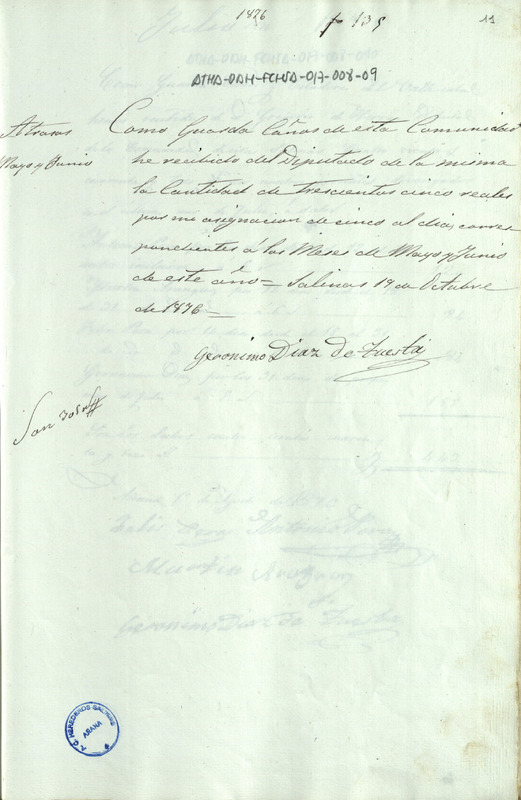 1876
f 135
11
ATHA-DAH-FCHSA-017-008-09
Atrasos
Mayo y Junio
Como Guarda Caños de esta Comunidad
he recibido del Diputado de la misma
la Cantidad de trescientos cinco reales
por mi asignacion de cinco al dia, corres
pondientes á los Meses de Mayo y Junio
de este año = Salinas 19 de Octubre
de 1876 =
Geronimo Diaz de Tuesta
Son 305 rs
HEREDEROS SALINAS
ARAÑA